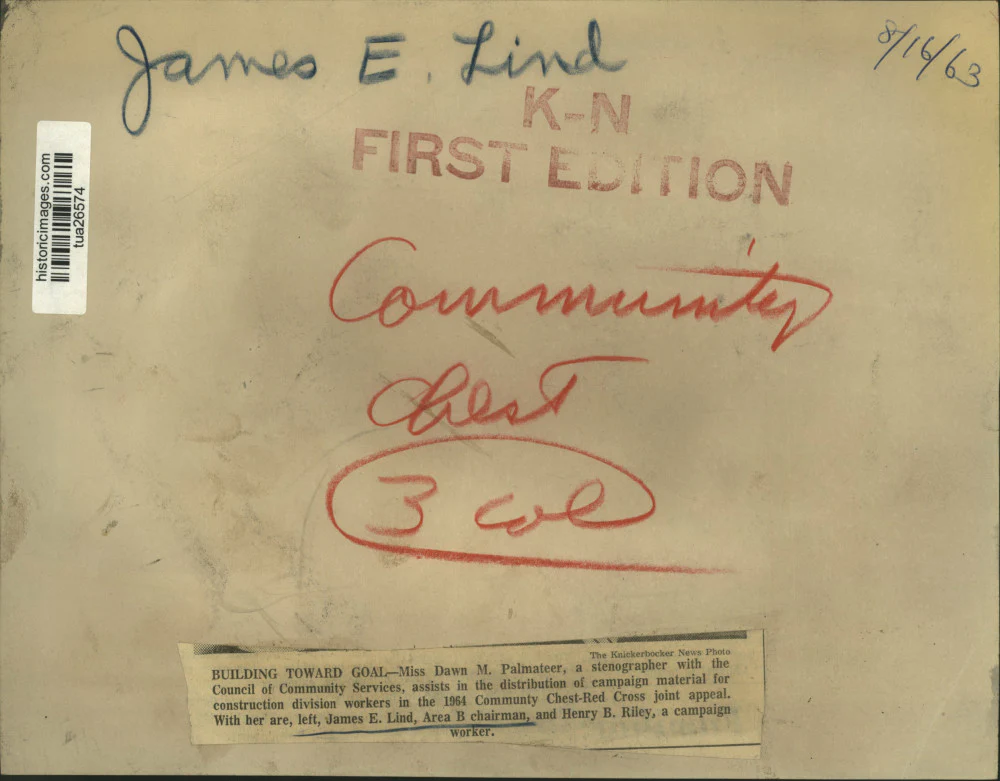 James E. Lind
8/16/63
K-N
FIRST EDITION
historicimages.com
tua26574
Community
Chest
3 col
The Knickerbocker News Photo
BUILDING TOWARD GOAL—Miss Dawn M. Palmateer, a stenographer with the
Council of Community Services, assists in the distribution of campaign material for
construction division workers in the 1964 Communty Chest-Red Cross joint appeal.
With her are, left, James E. Lind, Area B chairman, and Henry B. Riley, a campaign
worker.